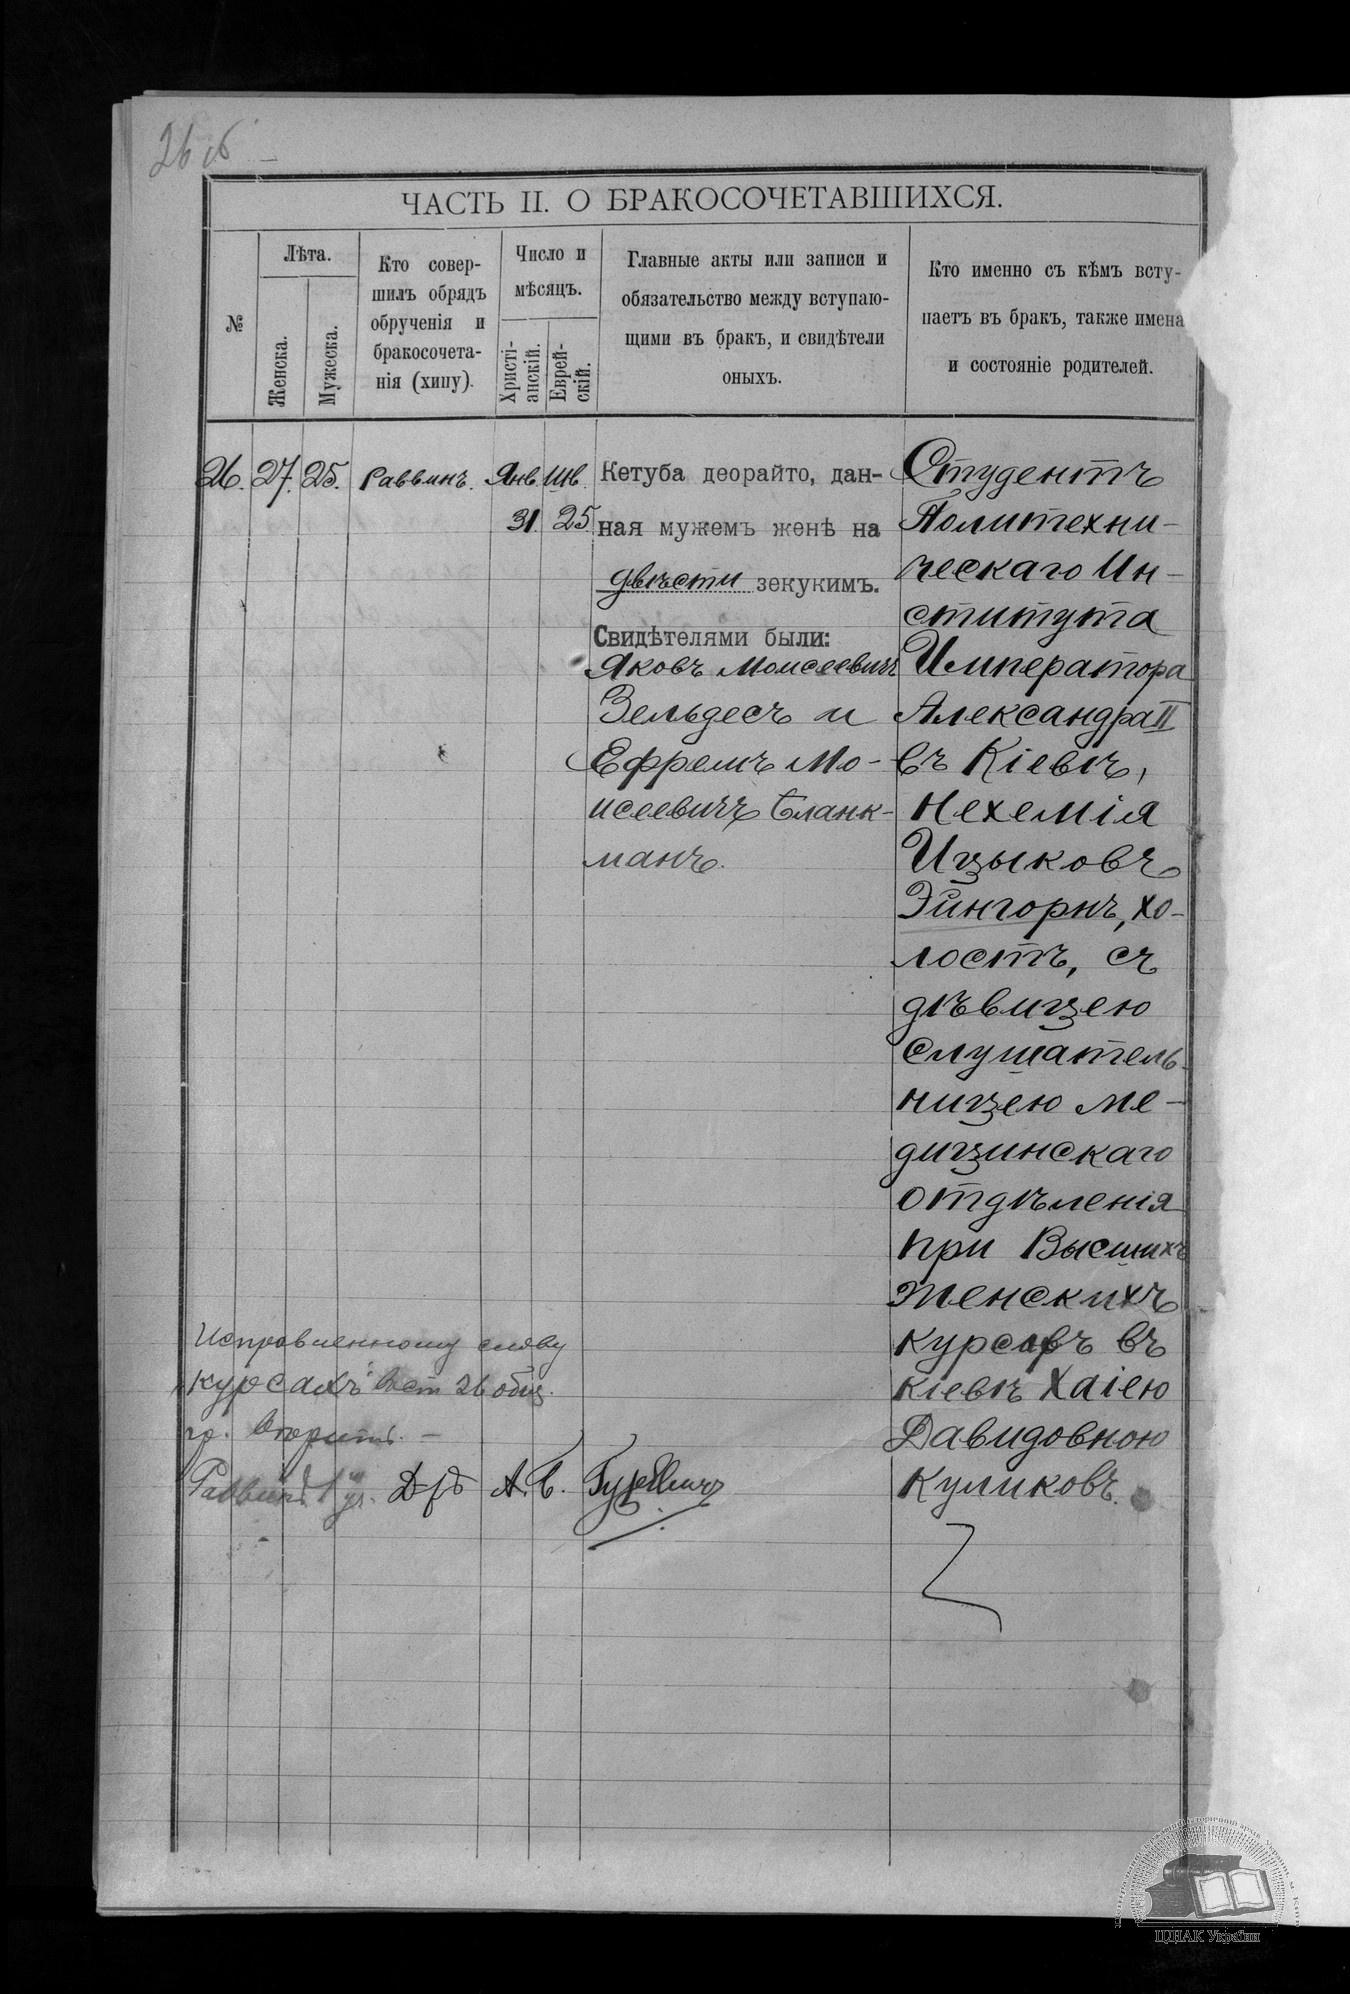 26 об
ЧАСТЬ II. О БРАКОСОЧЕТАВШИХСЯ.
№
Лѣта.
Женска.
Мужеска.
Кто совер-
шилъ обрядъ
обрученія и
бракосочета-
нія (хипу).
Число и
мѣсяцъ.
Христі-
анскій.
Еврей-
скій.
Главные акты или записи и
обязательство между вступаю-
щими въ бракъ, и свидѣтели
оныхъ.
Кто именно съ кѣмъ всту-
паетъ въ бракъ, также имена
и состояніе родителей.
26. 27. 25. Раввинъ. Янв. Шв.
31. 25.
Кетуба деорайто, дан-
ная мужемъ женѣ на
двѣсти зекукимъ.
Свидѣтелями были:
Яковъ Моисеевичъ
Зельдесъ и
Ефремъ Мо-
исеевичъ Бланк-
манъ.
Студентъ
Политехни-
ческаго Ин-
ститута
Императора
Александра II
въ Кіевѣ,
Нехемія
Ицыковъ
Эйнгорнъ, хо-
лостъ, съ
дѣвицею
слушатель-
ницею ме-
дицинскаго
отдѣленія
при Высшихъ
Женскихъ
курсахъ въ
Кіевѣ Хаіею
Давидовною
Куликовъ.
Исправленному слову
"курсахъ" въ ст 26 общ.
гр. вѣрить. —
Раввинъ Д-ръ А. Б. Гуревичъ
ЦДІАК України